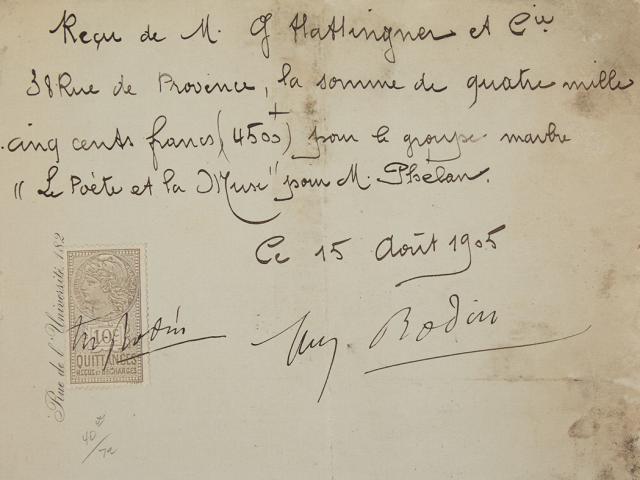 Reçu de M. G Hattingner et Cie
38 Rue de Provence, la somme de quatre mille
cinq cents francs (4500) pour le groupe marbre
"Le Poète et la Muse" pour M. Phelan.
Ce 15 Août 1905
Aug Rodin
Rue de l'Université, 182
Aug Rodin
10c
QUITTANCES
REÇUS ET DÉCHARGES
40
/72